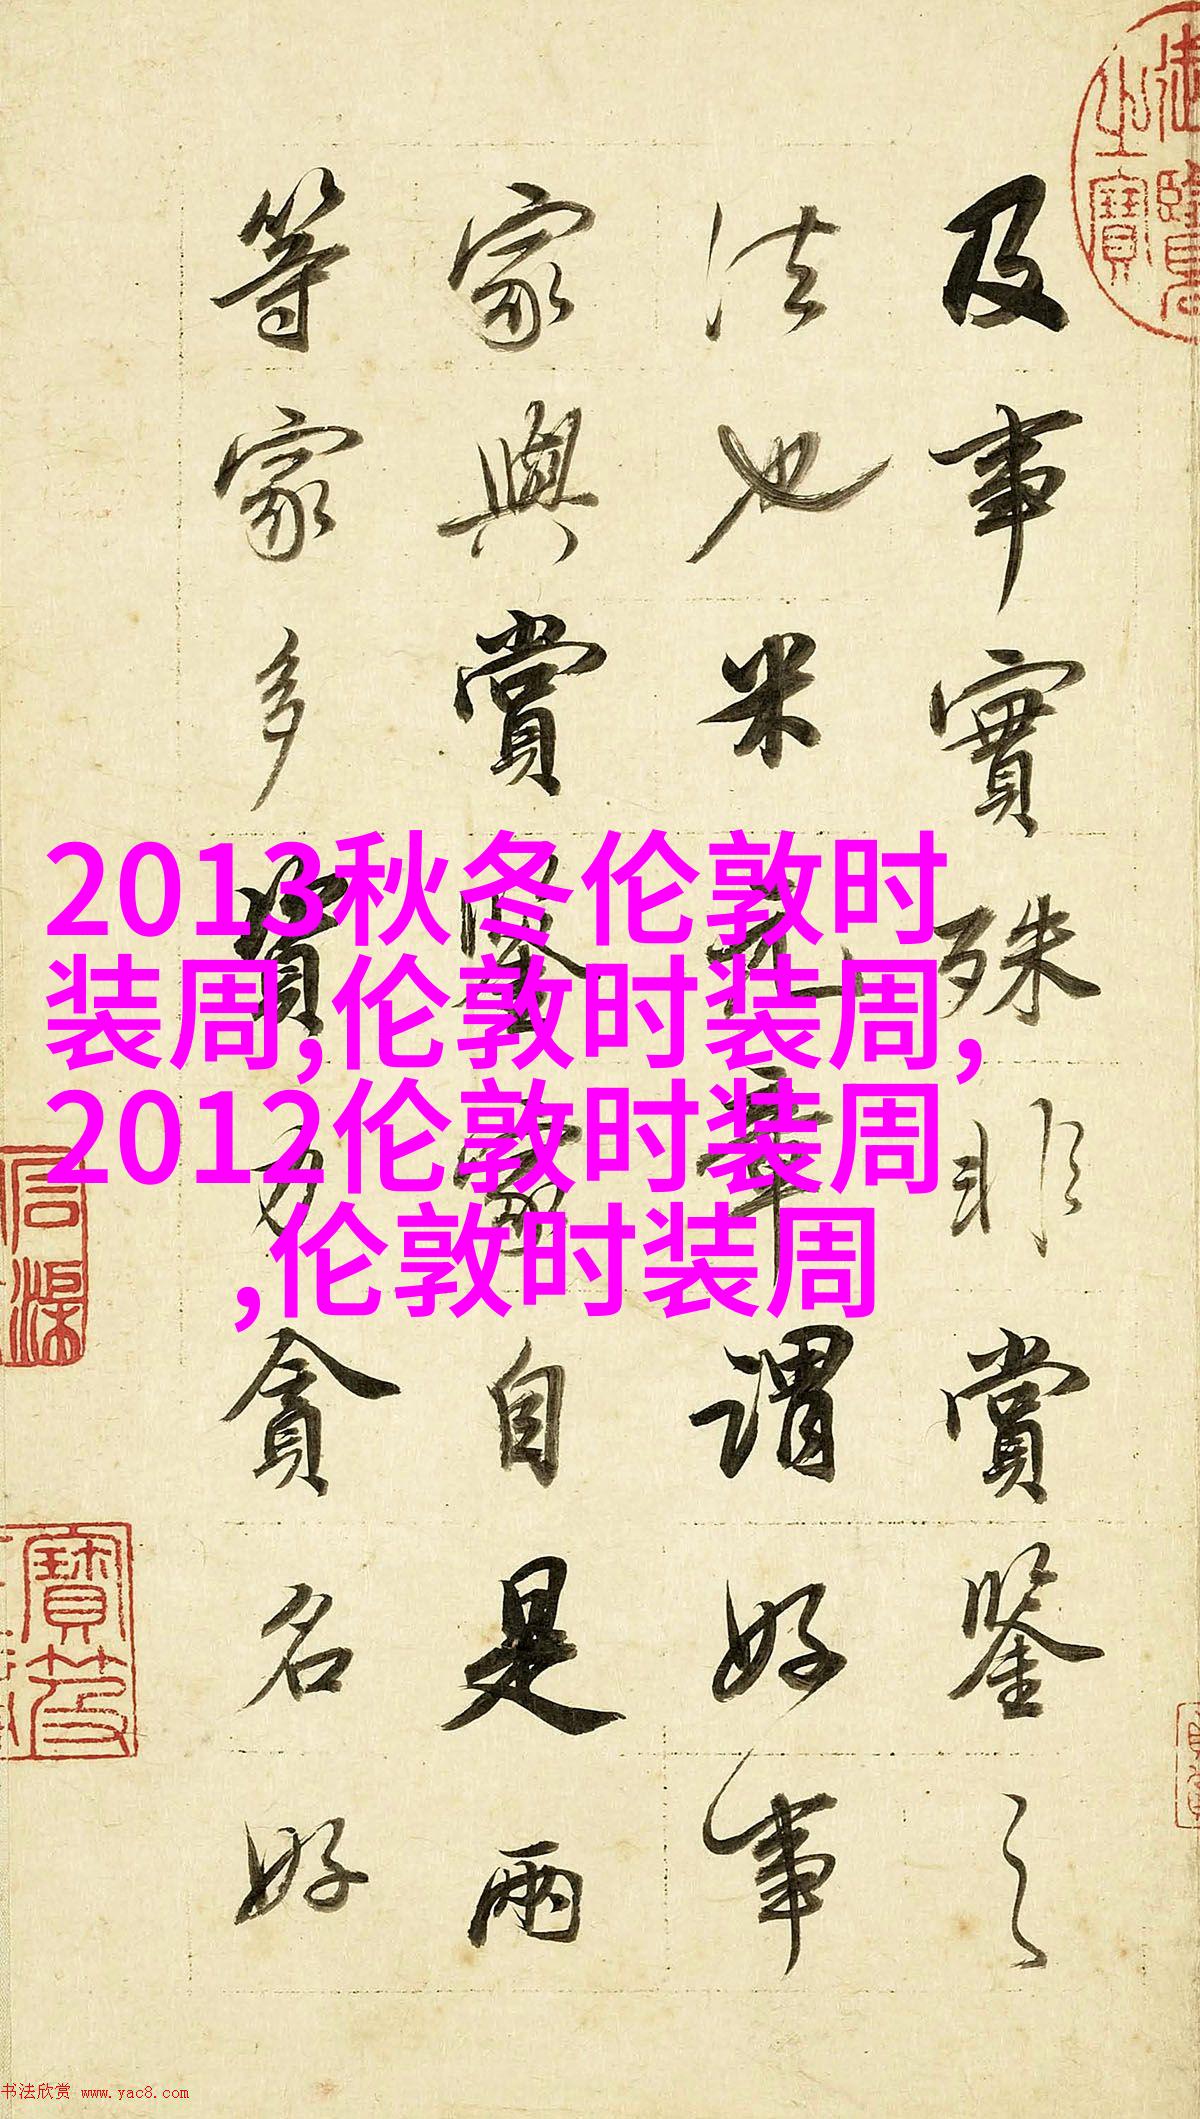 及事實殊非賞鑒之
法也米元章謂好事
家與賞鑒家自是兩
等家多資力貪名好
2013秋冬伦敦时
装周,伦敦时装周,
2012伦敦时装周
,伦敦时装周
御覽
之寶
书法欣赏 www.yac8.com